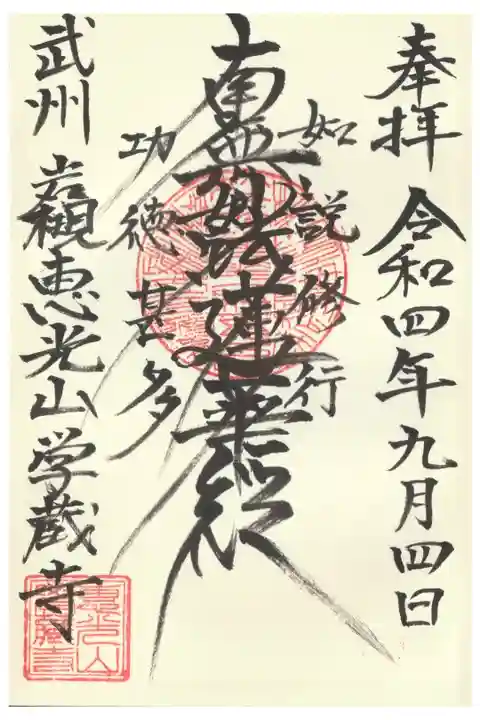 奉拝 令和四年九月四日
如説修行
南無妙法蓮華経
功徳甚多
武州 岩槻 恵光山学蔵寺